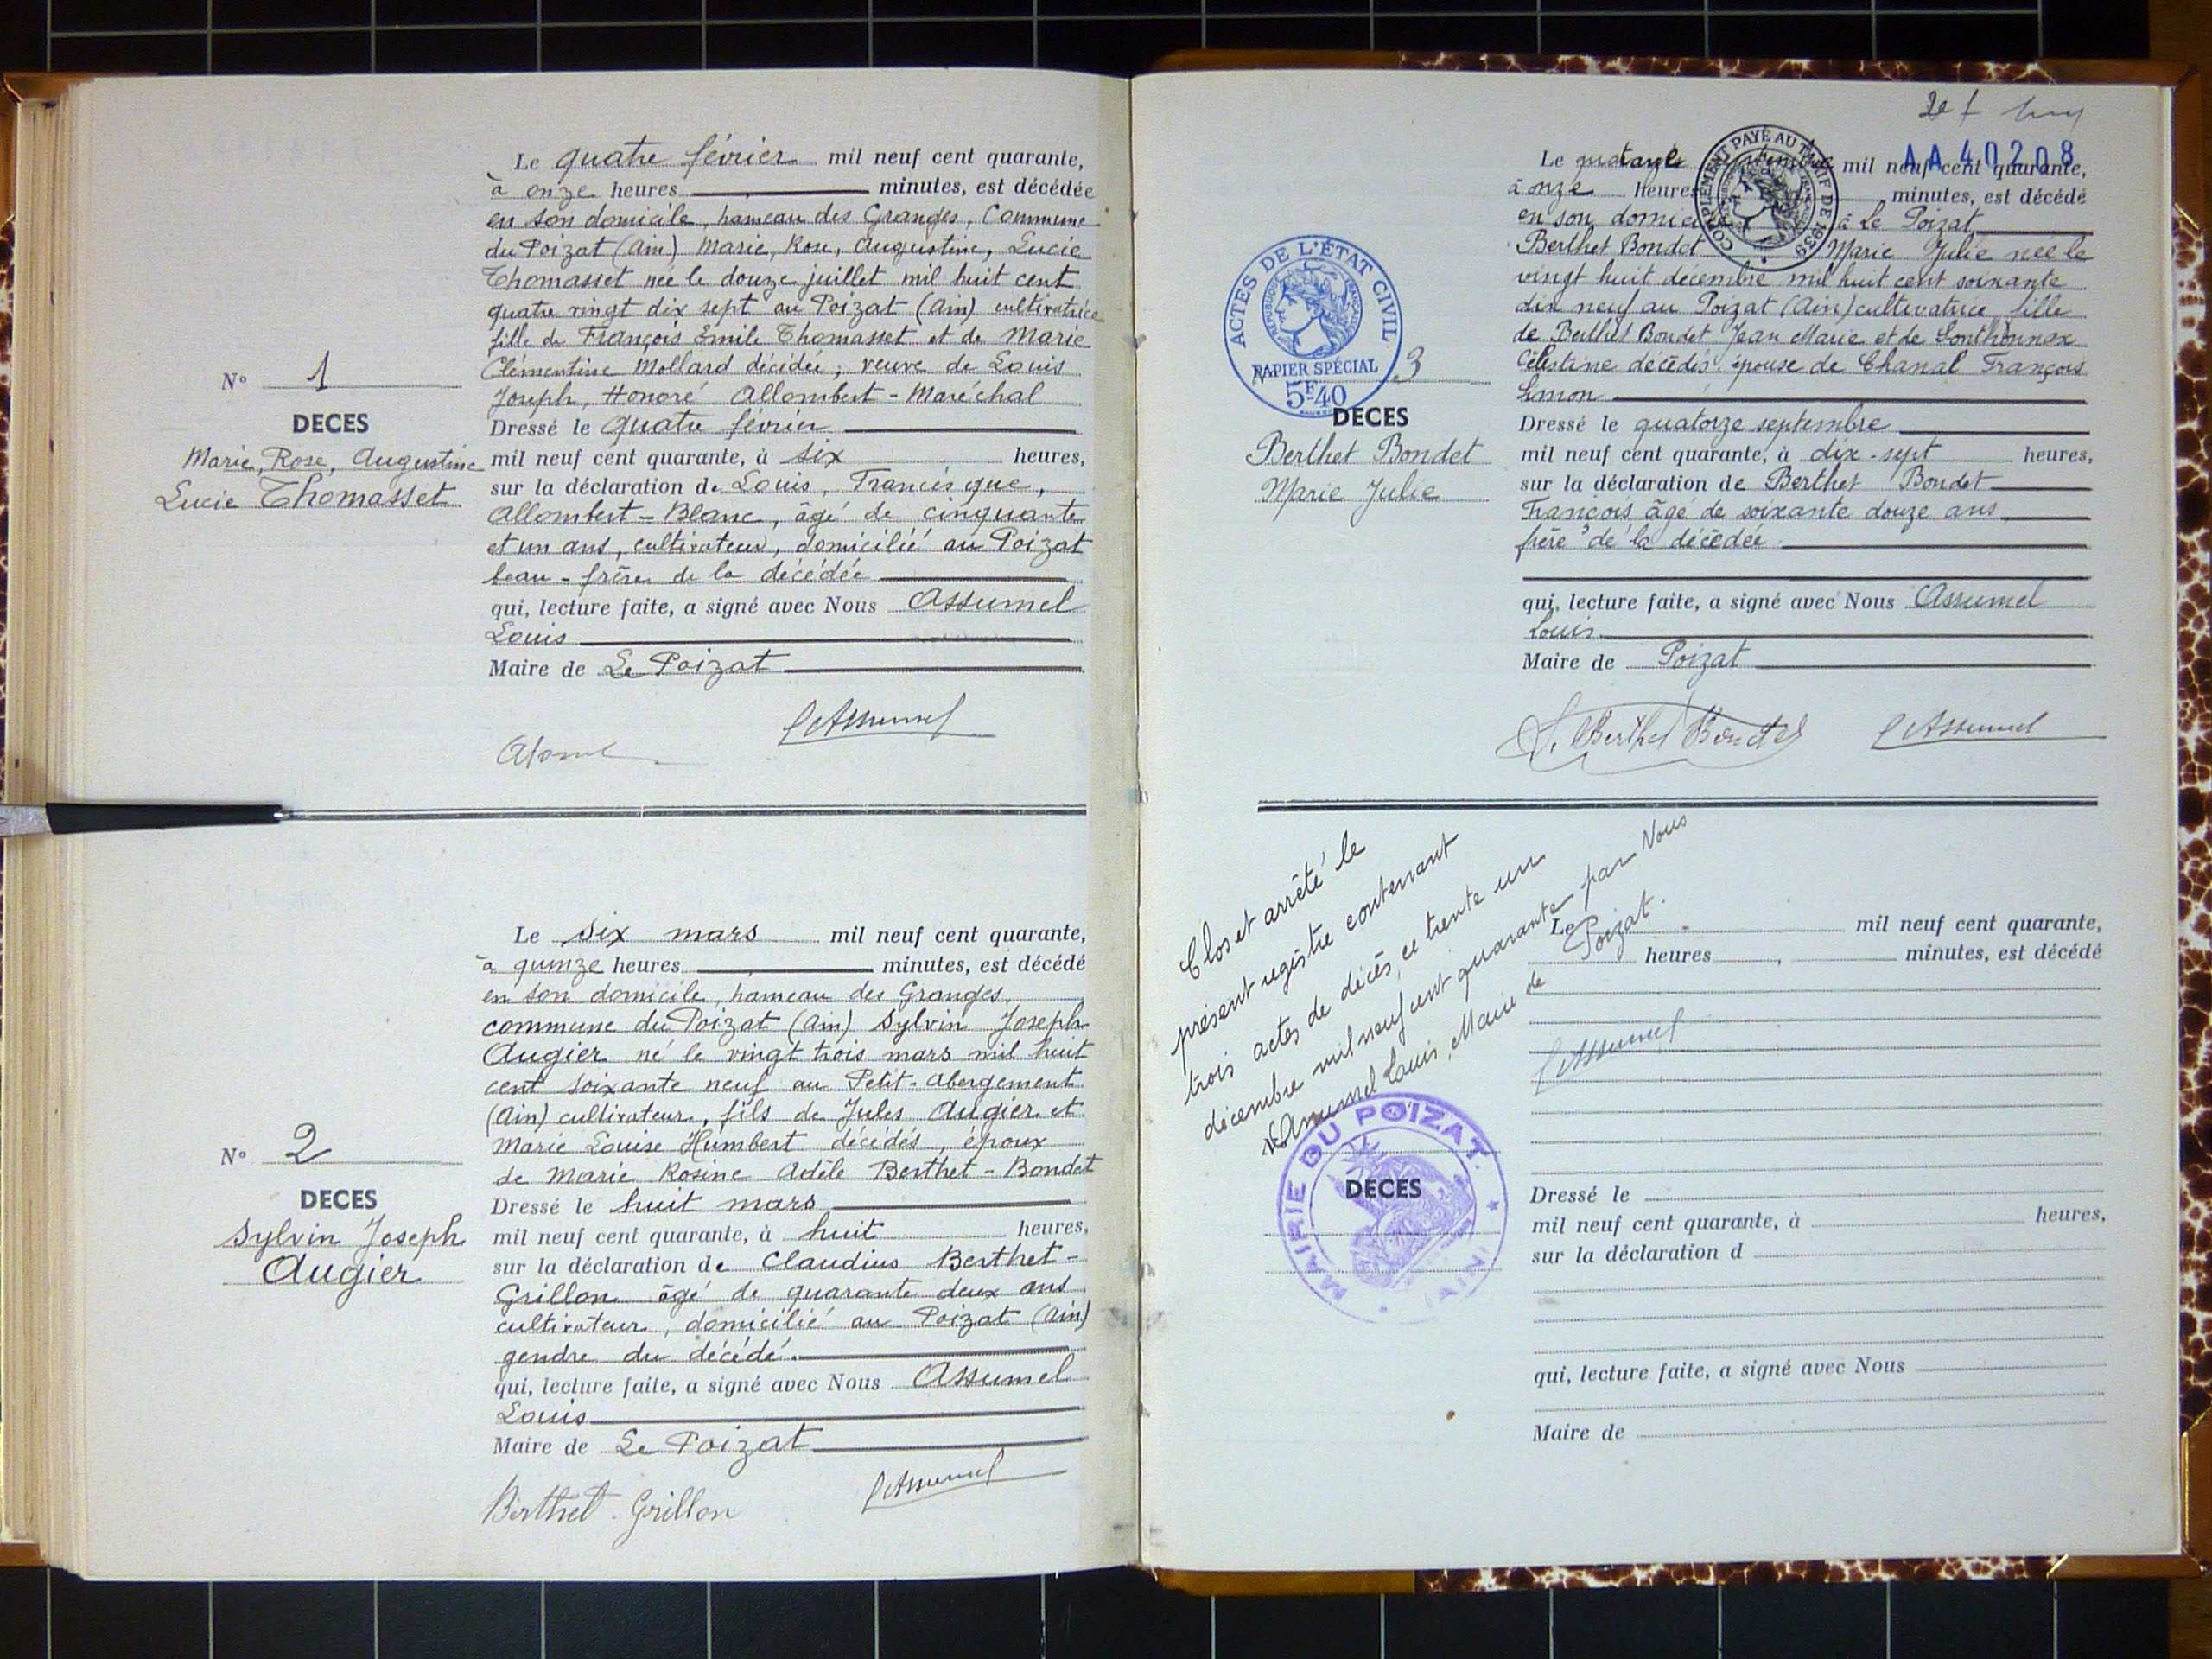 Le quatre février mil neuf cent quarante,
à onze heures minutes, est décédée
en son domicile, hameau des Granges, Commune
du Poizat (Ain) Marie, Rose, Augustine, Lucie
Thomasset née le douze juillet mil huit cent
quatre vingt dix sept au Poizat (Ain) cultivatrice
fille de François Emile Thomasset et de Marie
Clémentine Mollard décédée, veuve de Louis
Joseph, Honoré Allombert-Maréchal
N° 1
DECES
Marie, Rose, Augustine
Lucie Thomasset
Dressé le quatre février
mil neuf cent quarante, à six heures,
sur la déclaration de Louis, Francisque,
Allombert-Blanc, âgé de cinquante
et un ans, cultivateur, domicilié au Poizat
beau-frère de la décédée
qui, lecture faite, a signé avec Nous Assumel
Louis
Maire de Le Poizat
LAssumel
Le six mars mil neuf cent quarante,
à quinze heures minutes, est décédé
en son domicile, hameau des Granges,
commune du Poizat (Ain) Sylvin Joseph
Augier né le vingt trois mars mil huit
cent soixante neuf au Petit-Abergement
(Ain) cultivateur, fils de Jules Augier et
Marie Louise Humbert décédés, époux
de Marie Rosine Adèle Berthet-Bondet
N° 2
DECES
Sylvin Joseph
Augier
Dressé le huit mars
mil neuf cent quarante, à huit heures,
sur la déclaration de Claudius Berthet-
Grillon âgé de quarante deux ans
cultivateur, domicilié au Poizat (Ain)
gendre du décédé.
qui, lecture faite, a signé avec Nous Assumel
Louis
Maire de Le Poizat
Berthet-Grillon
LAssumel
AA 40208
COMPLÉMENT PAYÉ AU TARIF DE 1939
Le quatorze mil neuf cent quarante,
à onze heures minutes, est décédé
en son domici à Le Poizat
Berthet Bondet Marie Julie née le
vingt huit décembre mil huit cent soixante
dix neuf au Poizat (Ain) cultivatrice fille
de Berthet Bondet Jean Marie et de Sonthonnax
Célestine décédés. épouse de Chanal François
Simon
ACTES DE L'ÉTAT CIVIL
RÉPUBLIQUE FRANÇAISE
PAPIER SPÉCIAL
5F40
3
DECES
Berthet Bondet
Marie Julie
Dressé le quatorze septembre
mil neuf cent quarante, à dix-sept heures,
sur la déclaration de Berthet Bondet
François âgé de soixante douze ans
frère de la décédée.
qui, lecture faite, a signé avec Nous Assumel
Louis
Maire de Poizat
Berthet Bondet
LAssumel
Clos et arrêté le
présent registre contenant
trois actes de décès, ce trente un
décembre mil neuf cent quarante par Nous
Assumel Louis, Maire de Poizat.
LAssumel
MAIRIE DU POIZAT
(AIN)
DECES
Le mil neuf cent quarante,
heures minutes, est décédé
Dressé le
mil neuf cent quarante, à heures,
sur la déclaration d
qui, lecture faite, a signé avec Nous
Maire de